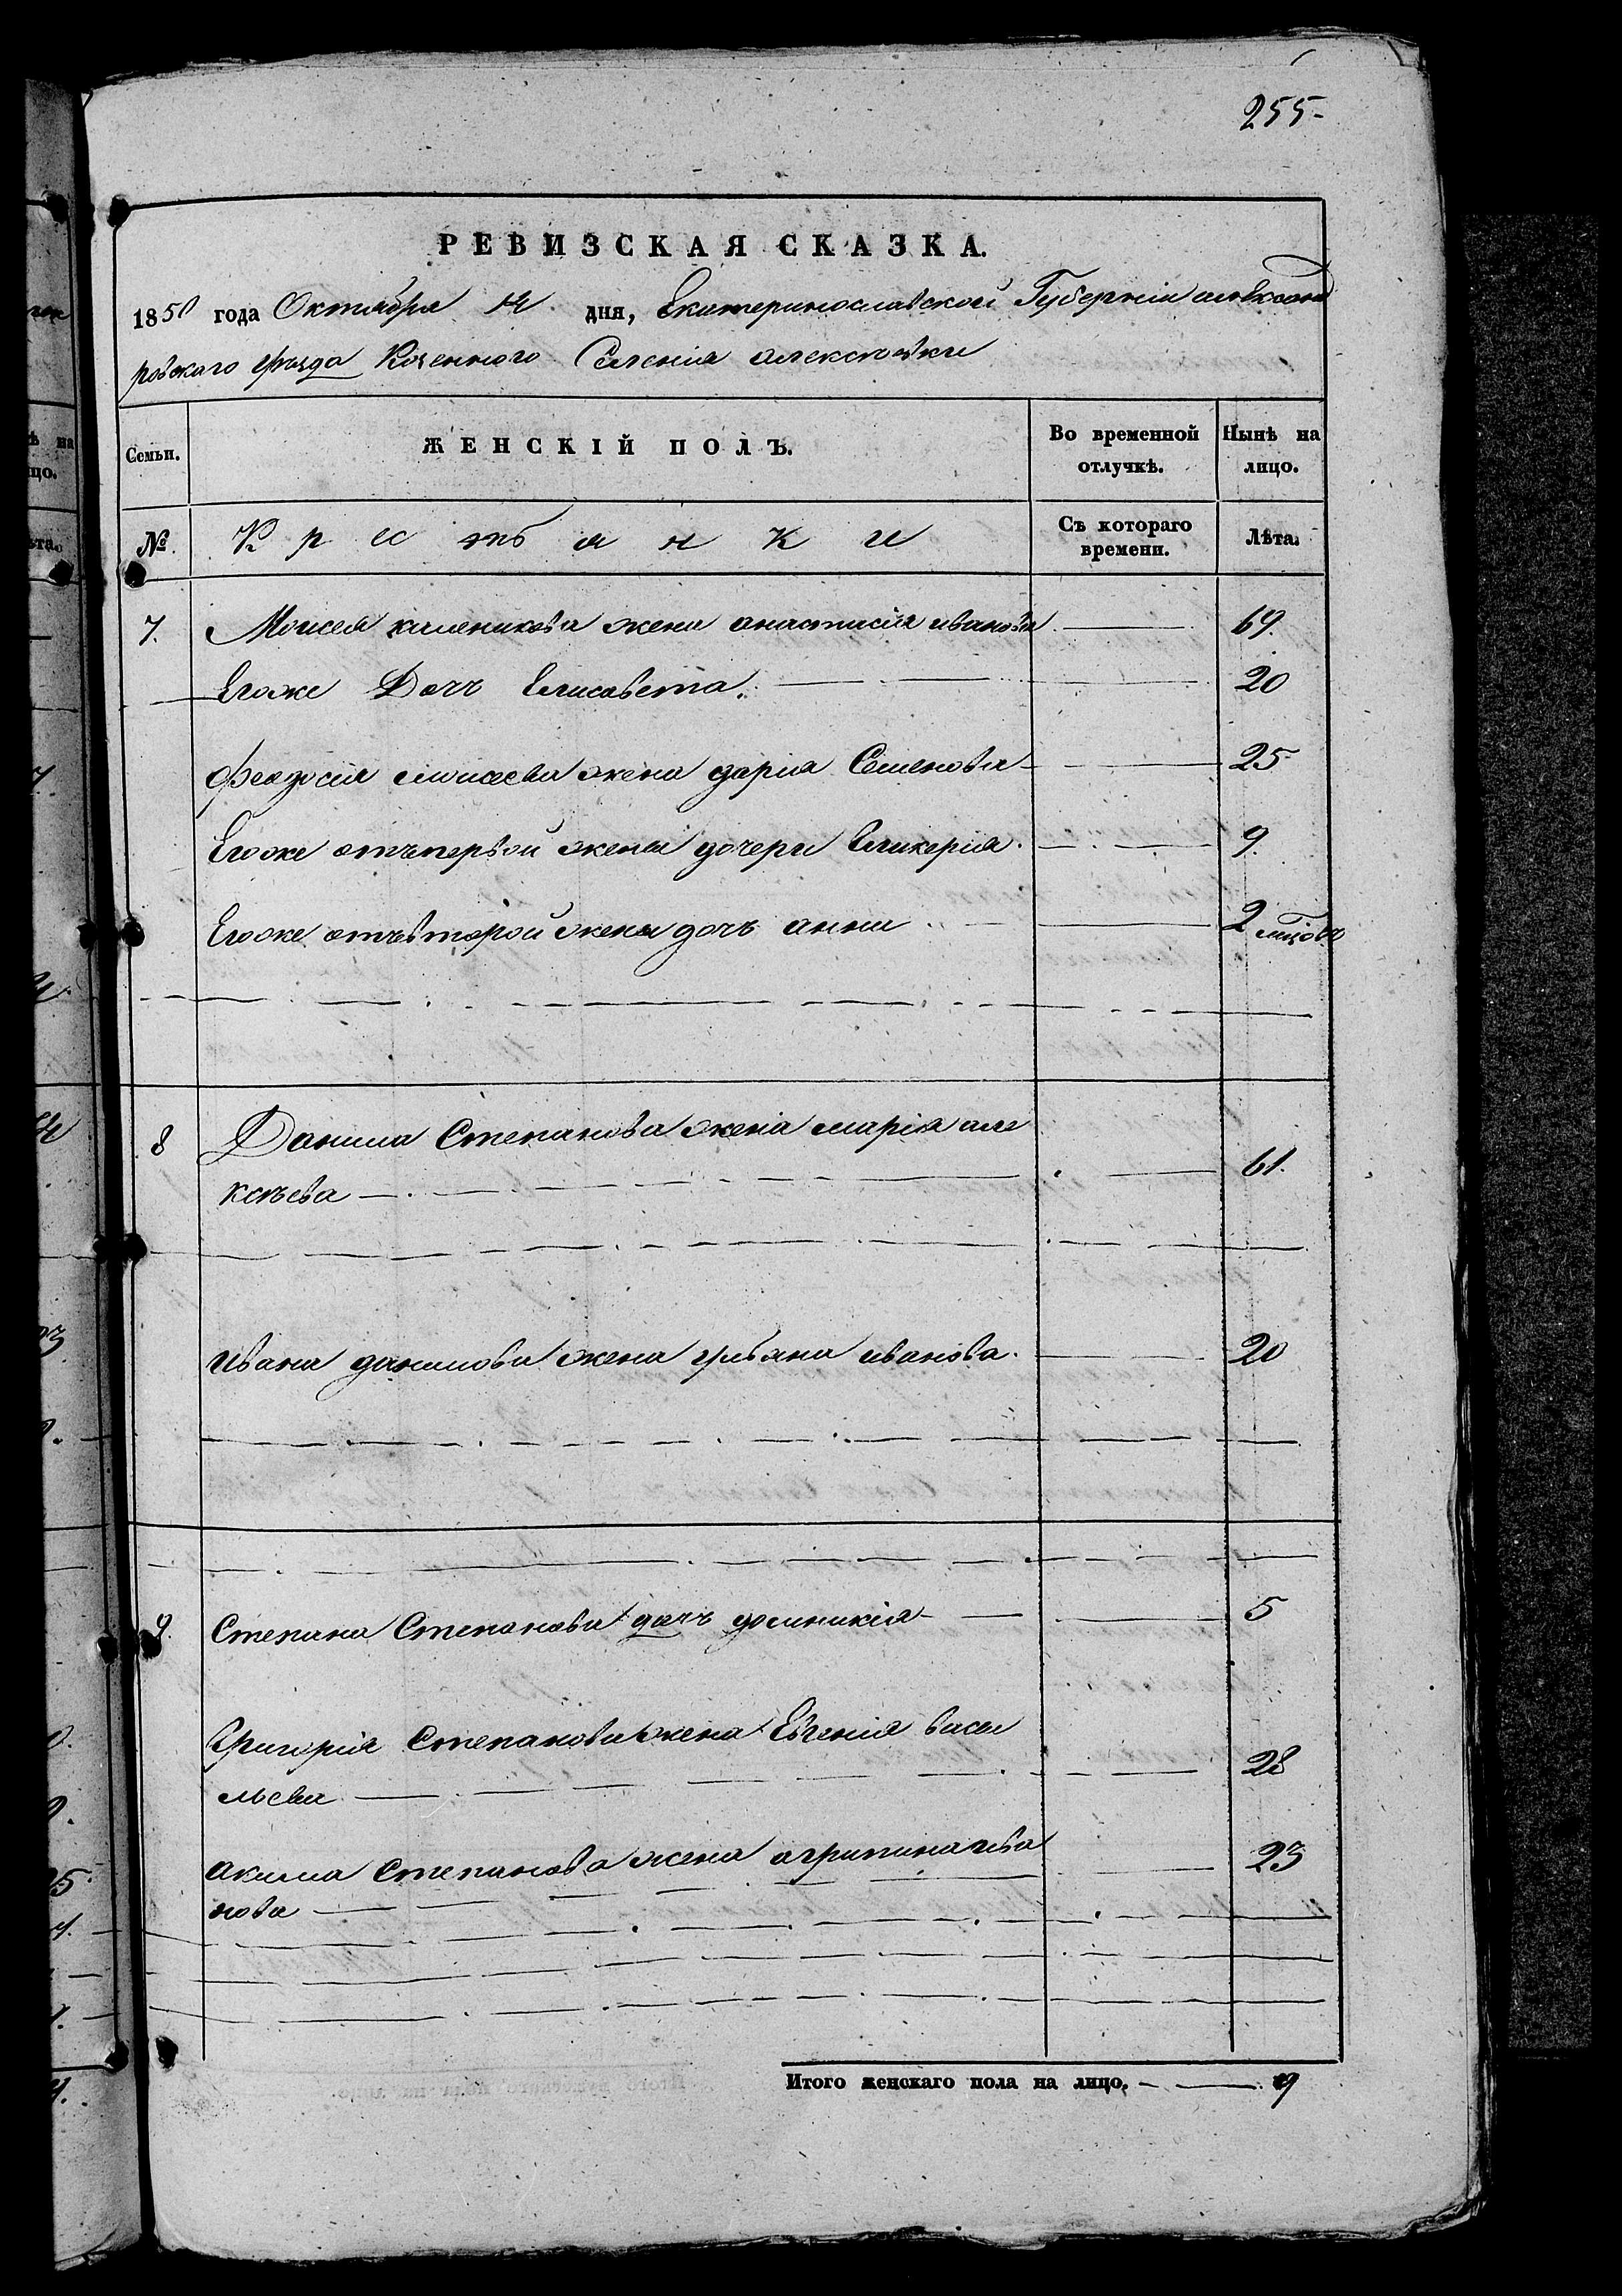 255-
РЕВИЗСКАЯ СКАЗКА.
1850 года Октября 14 дня, Екатеринославской Губерніи александ
ровскаго уѣзда Козенного Селенія алексѣевки
Семьи. ЖЕНСКІЙ ПОЛЪ. Во временной отлучкѣ. Нынѣ на лицо.
№. Крестьянки Съ котораго времени. Лѣта.
7. Моисея каленикова жена анастасія иванова 69.
Егоже Дочъ Елисавета. 20
феодосія моисеева жена дарія Семенова 25
Егоже отъпервой жены дочери Гликерія. 9.
Егоже отъвторой жены дочъ анна 2 мцовъ
8 Данила Степанова жена марія але
ксѣева 61.
ивана данилова жена ульяна иванова. 20
9. Степана Степанова дочъ доминикія 5
Григорія Степанова жена Евгенія васи
льева 28
акима Степанова жена агрипина ива
нова 23
Итого женскаго пола на лицо. 9